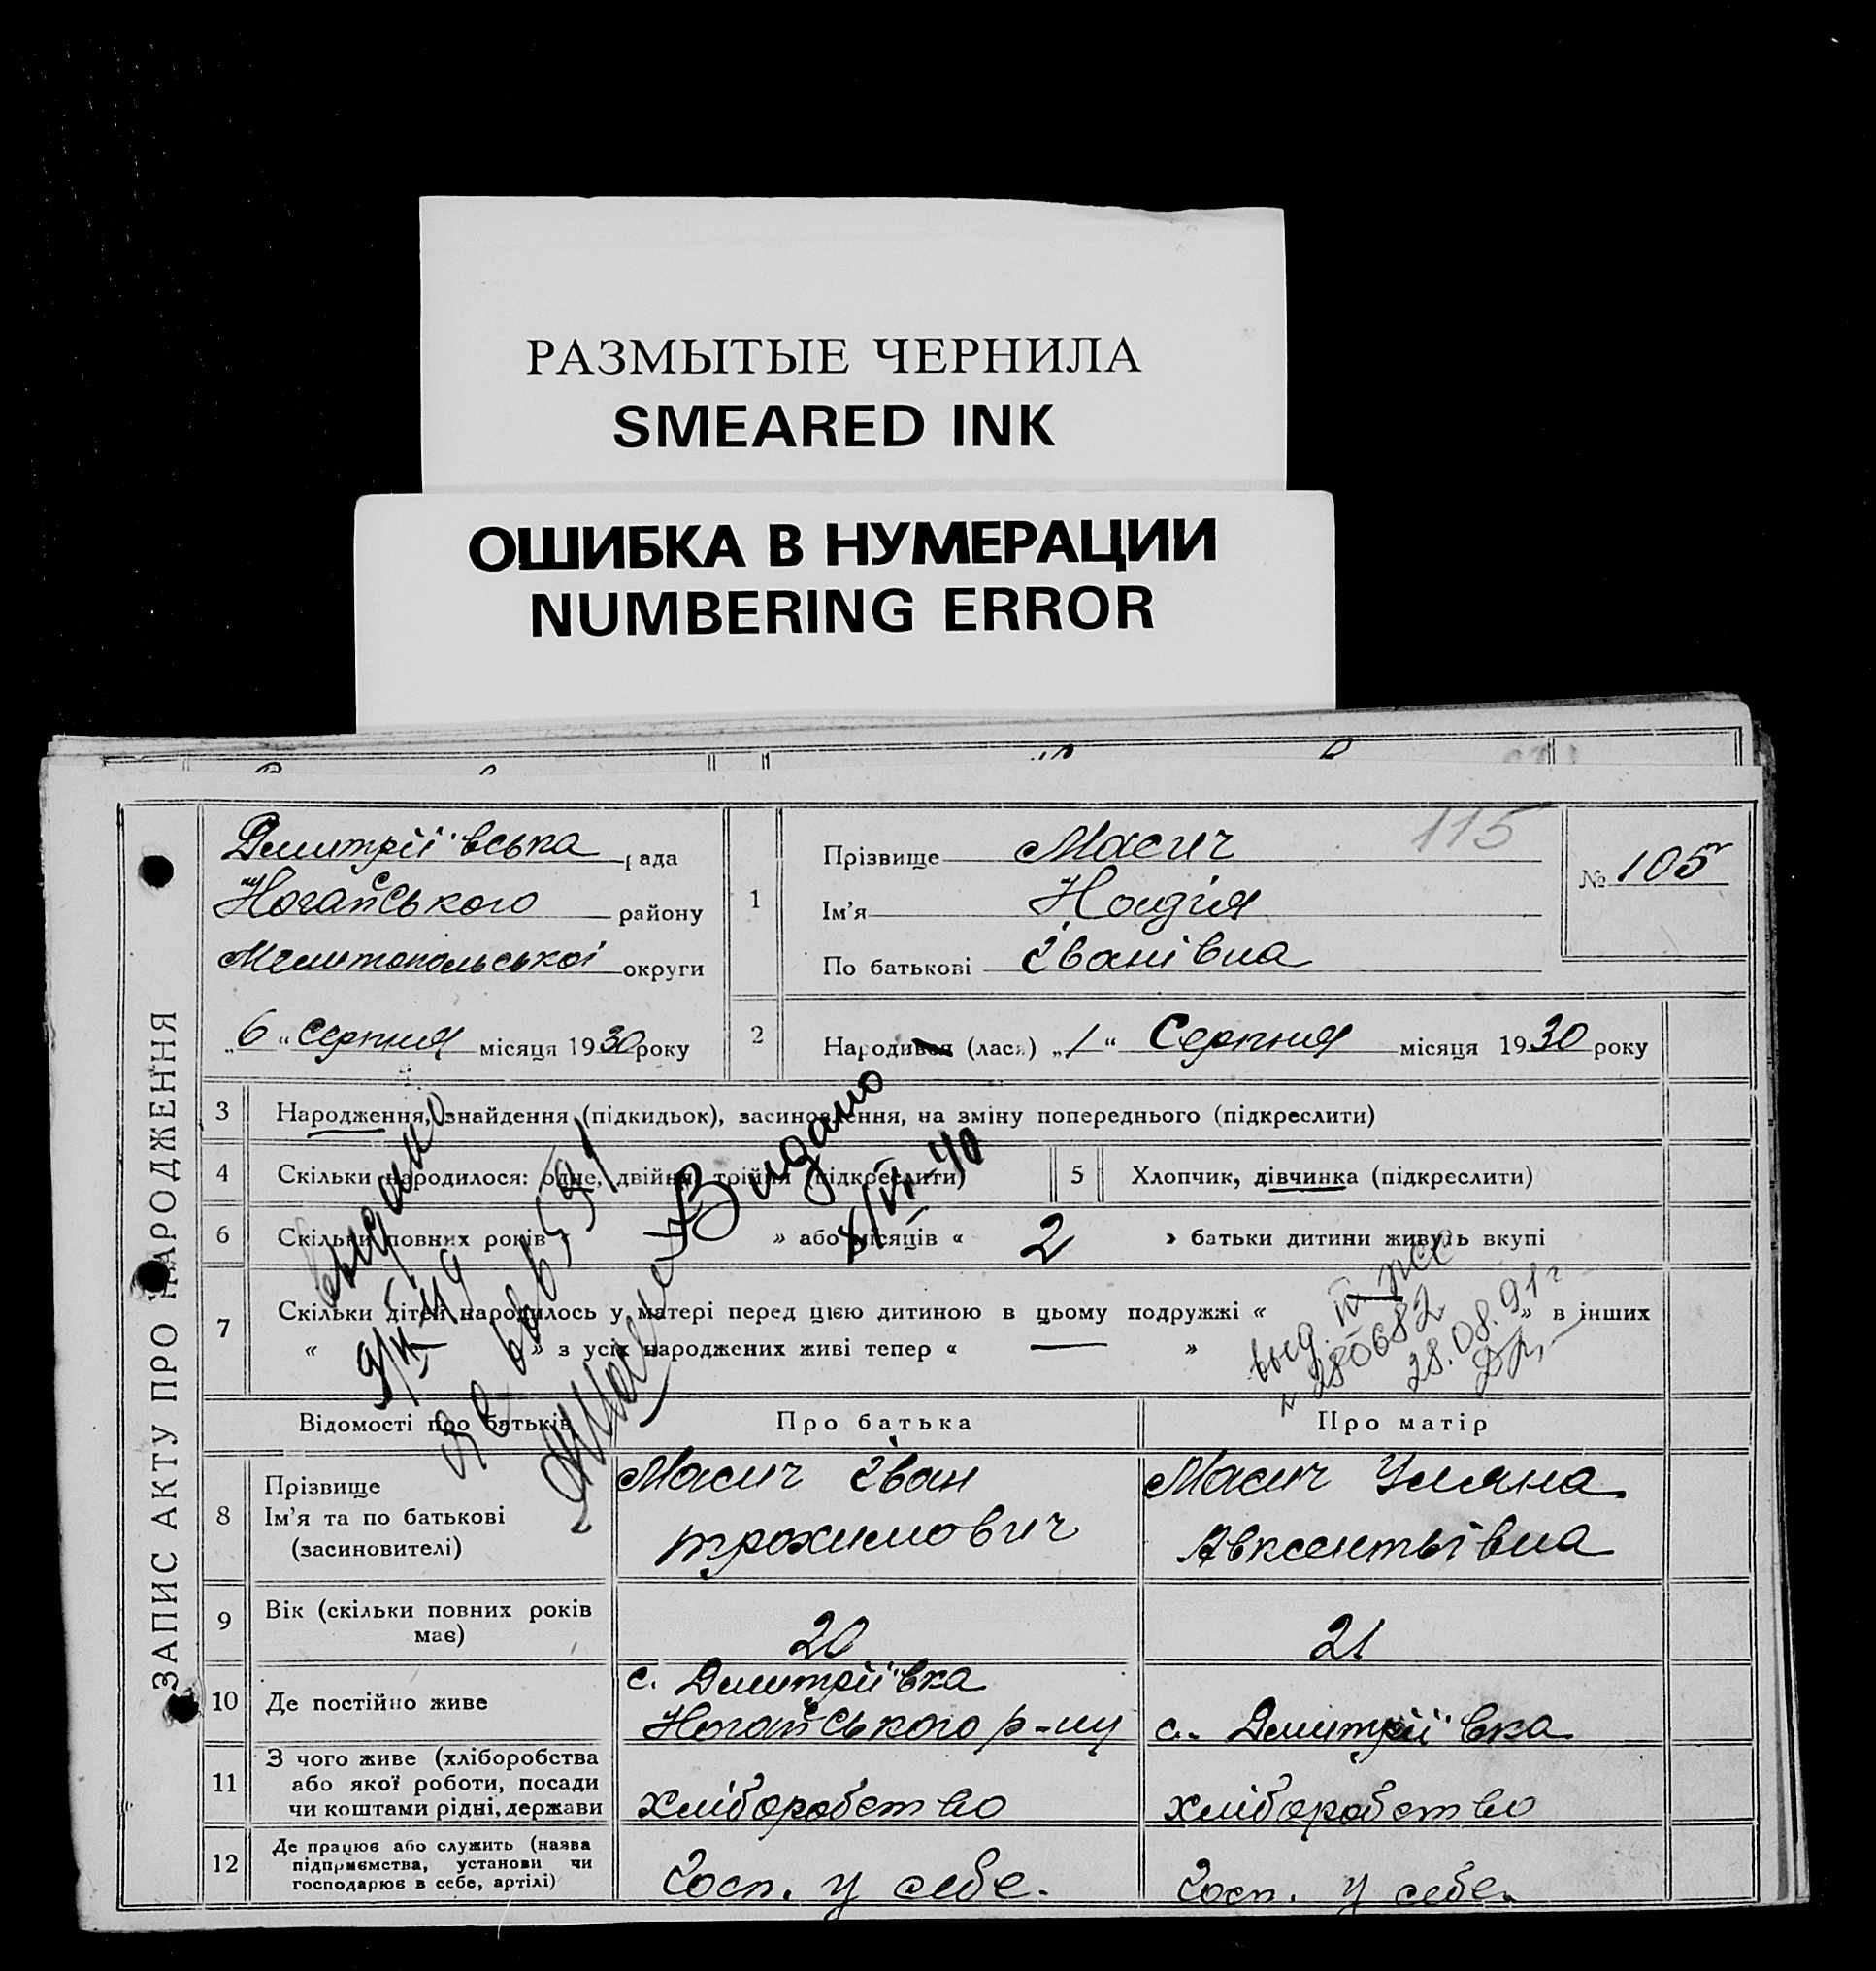 РАЗМЫТЫЕ ЧЕРНИЛА
SMEARED INK
ОШИБКА В НУМЕРАЦИИ
NUMBERING ERROR
ЗАПИС АКТУ ПРО НАРОДЖЕННЯ
Дмитріївська рада
Ногайського району
Мелитопольської округи
„6“ Серпня місяця 1930 року
115
1 Прізвище Масич
Ім'я Надія
По батькові Іванівна
№ 105
2 Народився (лася) „1“ Серпня місяця 1930 року
3 Народження, знайдення (підкидьок), засиновлення, на зміну попереднього (підкреслити)
4 Скільки народилося: одне, двійня, трійня (підкреслити)
5 Хлопчик, дівчинка (підкреслити)
6 Скільки повних років « » або місяців « 2 » батьки дитини живуть вкупі
7 Скільки дітей народилось у матері перед цією дитиною в цьому подружжі « — » в інших
« » з усіх народжених живі тепер « — »
выдано
Видано
выд.
28.08.91г
Відомості про батьків
Про батька
Про матір
8 Прізвище
Ім'я та по батькові
(засиновителі)
Масич Іван
Трохимович
Масич Уляна
Авксентьївна
9 Вік (скільки повних років
має)
20
21
10 Де постійно живе
с. Дмитріївка
Ногайського р-ну
с. Дмитріївка
11 З чого живе (хліборобства
або якої роботи, посади
чи коштами рідні, держави
хліборобство
хліборобство
12 Де працює або служить (назва
підприємства, установи чи
господарює в себе, артілі)
Госп. у себе.
Госп. у себе.